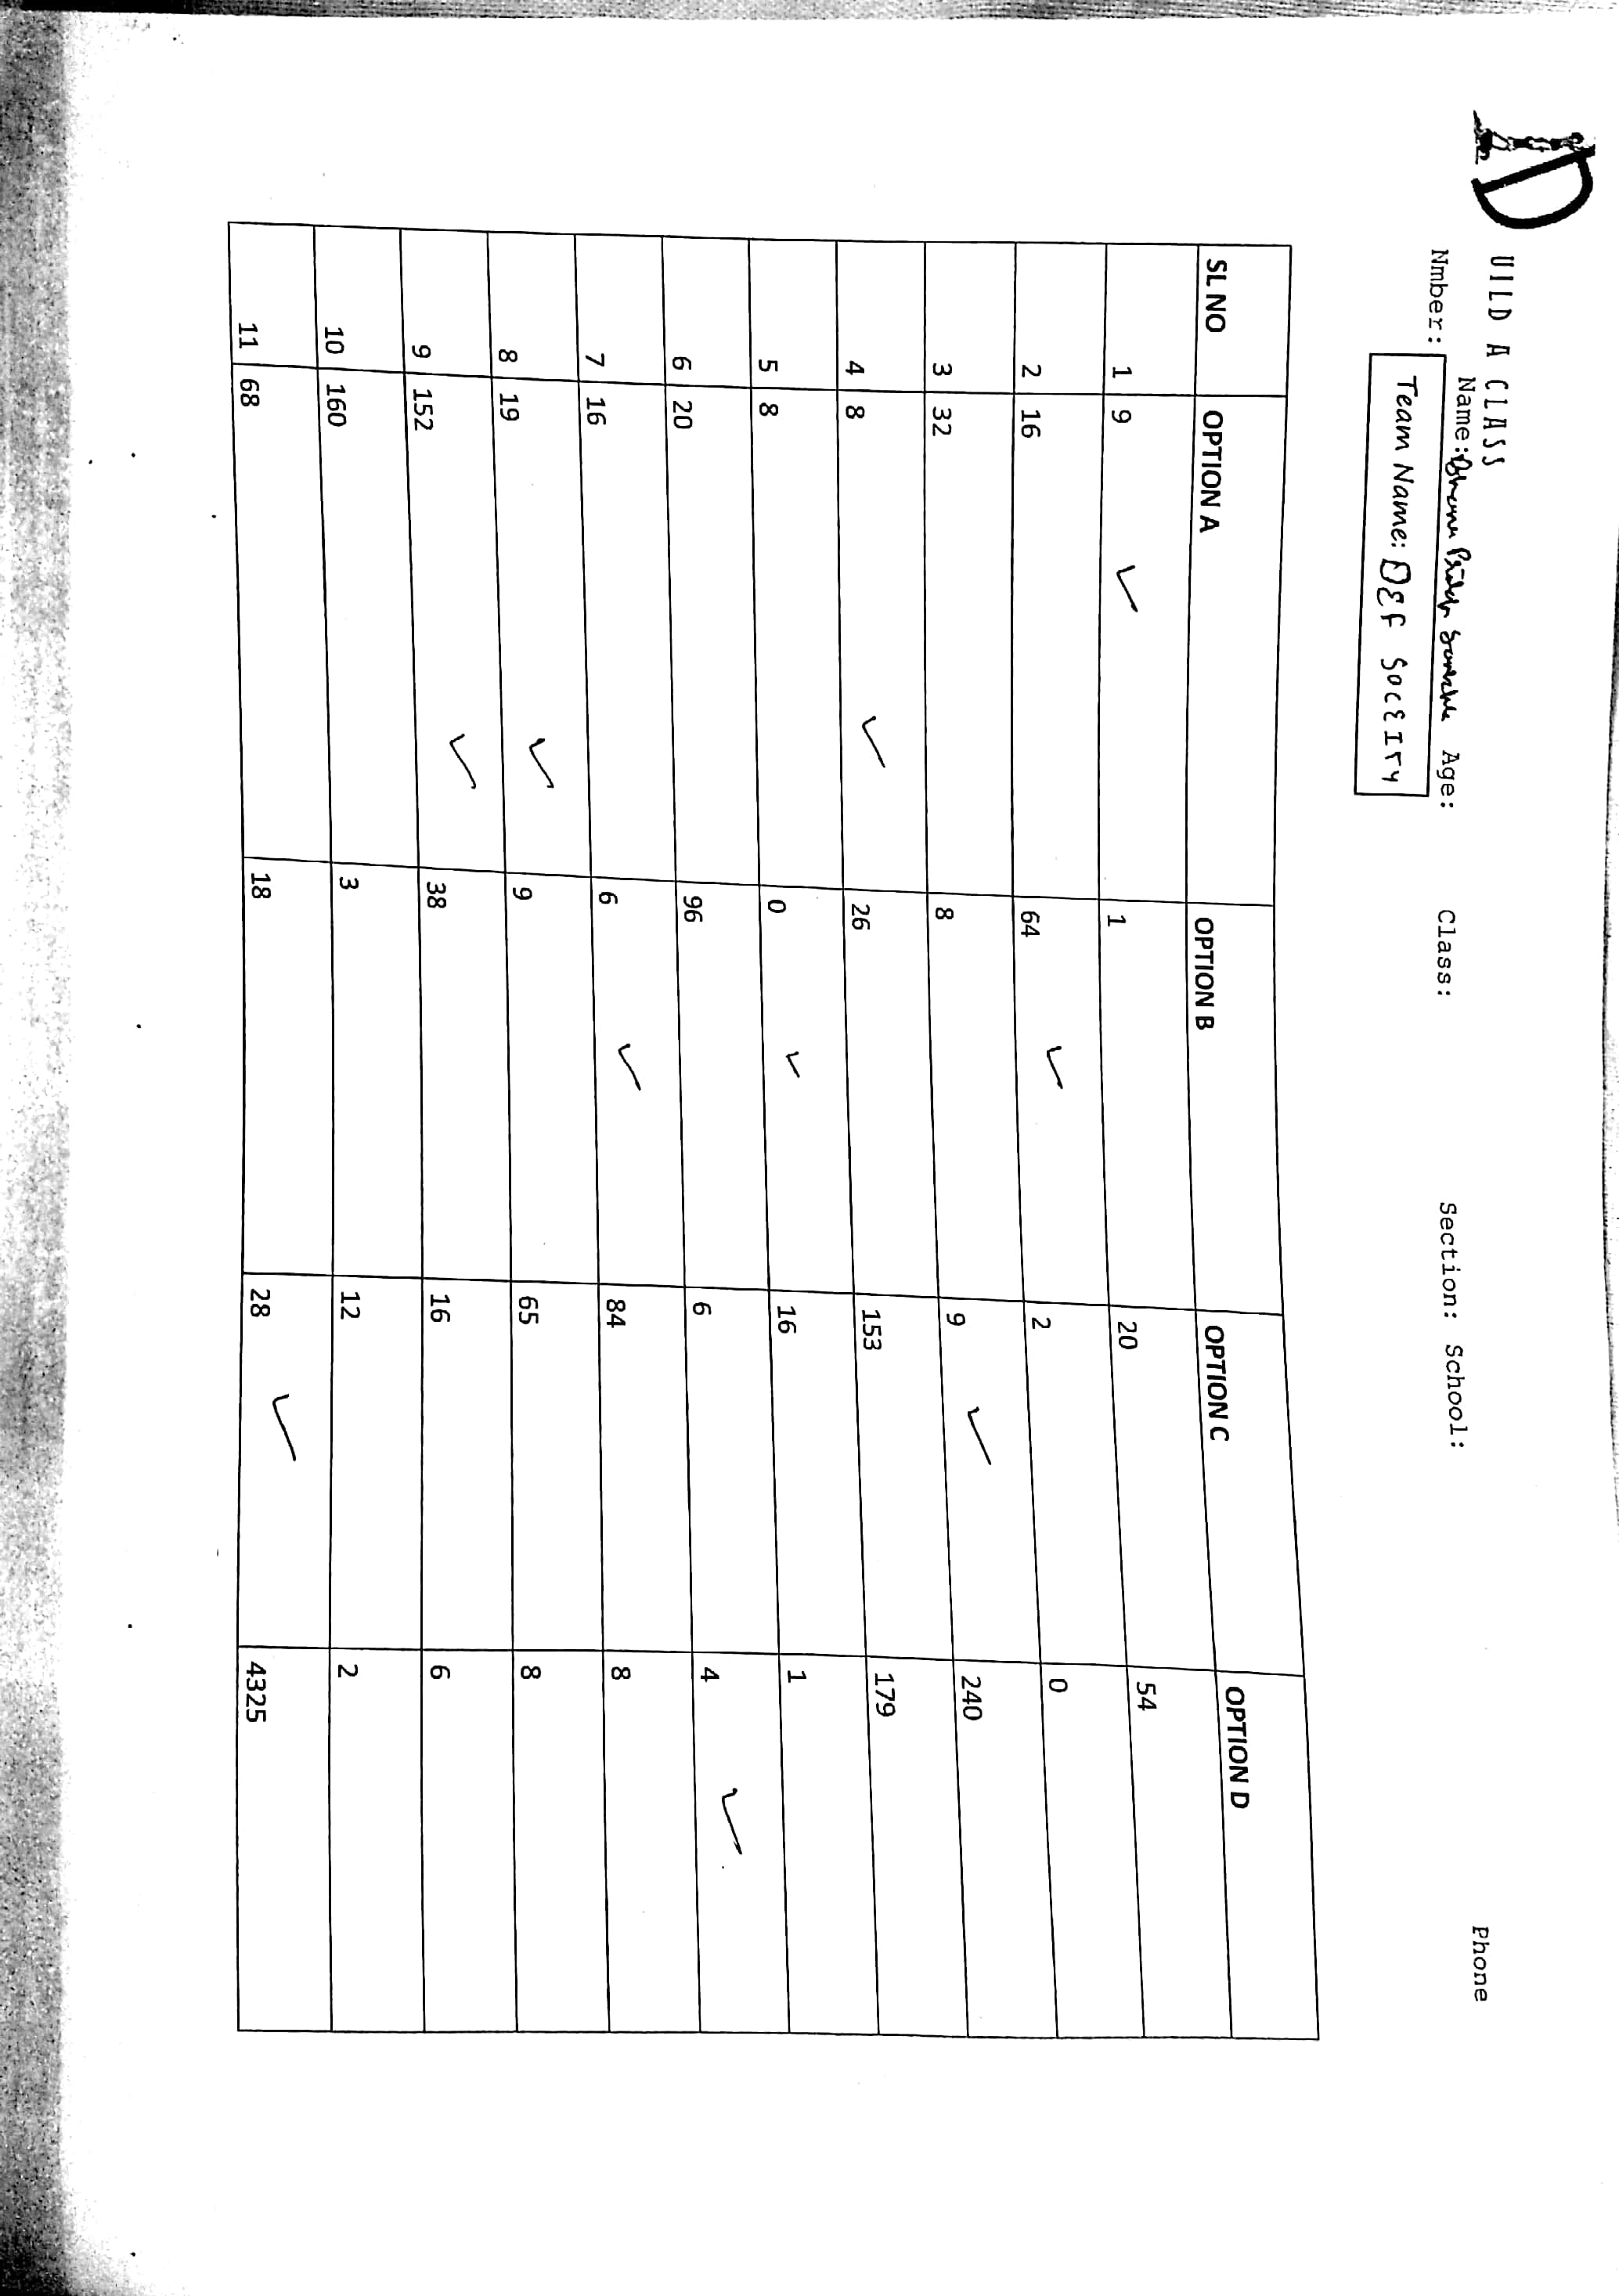 D UILD A CLASS
Name: Age: Class: Section: School: Phone
Nmber:
Team Name: DEF SOCEITY
SL NO OPTION A OPTION B OPTION C OPTION D
1 9 ✓ 1 20 54
2 16 64 ✓ 2 0
3 32 8 9 ✓ 240
4 8 ✓ 26 153 179
5 8 0 ✓ 16 1
6 20 96 6 4 ✓
7 16 6 ✓ 84 8
8 19 ✓ 9 65 8
9 152 ✓ 38 16 6
10 160 3 12 2
11 68 18 28 ✓ 4325